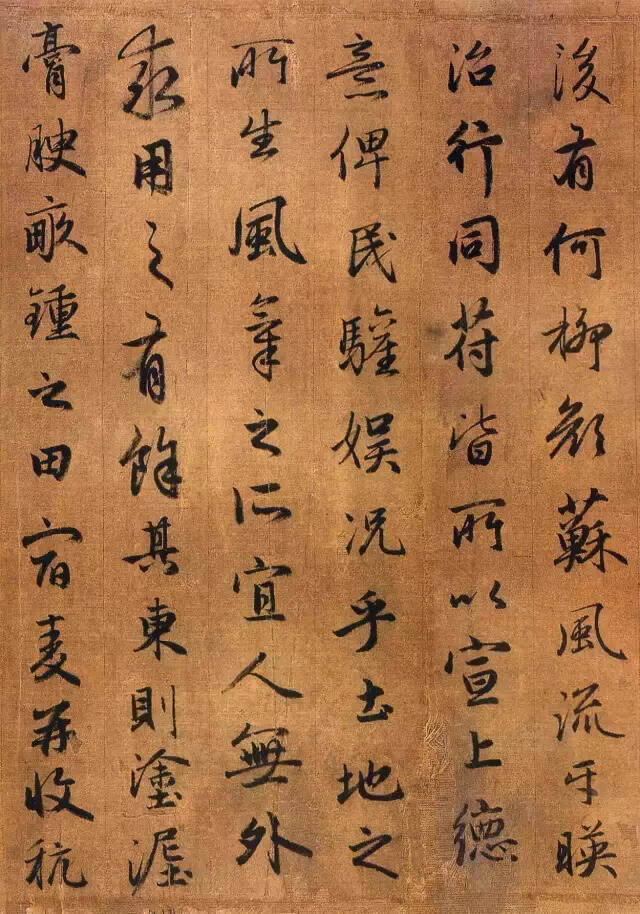 後有何柳顏蘇風流乎暎
治行同苻皆所以宣上德
意俾民驩娱况乎土地之
所生風氣之所宜人無外
求用之有餘其東則塗泥
膏腴畝鍾之田宿麦并收秔